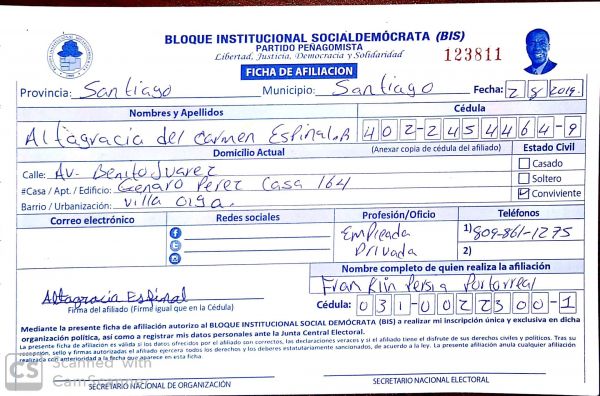 BLOQUE INSTITUCIONAL SOCIALDEMÓCRATA (BIS)
PARTIDO PEÑAGOMISTA
Libertad, Justicia, Democracia y Solidaridad
123811
FICHA DE AFILIACION
Provincia: Santiago Municipio: Santiago Fecha: 2/8/2019.
Nombres y Apellidos Cédula
Altagracia del Carmen Espinal.R 402-2454464-9
Domicilio Actual (Anexar copia de cédula del afiliado) Estado Civil
Calle: Av. Benito Juarez Casado
#Casa / Apt. / Edificio: Genaro Perez Casa 164 Soltero
Barrio / Urbanización: Villa Olga. Conviviente
Correo electrónico Redes sociales Profesión/Oficio Teléfonos
Empleada 1) 809-861-1275
Privada 2)
Nombre completo de quien realiza la afiliación
Franklin Persia Portorreal
Altagracia Espinal
Firma del afiliado (Firme igual que en la Cédula) Cédula: 031-0022300-1
Mediante la presente ficha de afiliación autorizo al BLOQUE INSTITUCIONAL SOCIAL DEMÓCRATA (BIS) a realizar mi inscripción única y exclusiva en dicha
organización política, así como a registrar mis datos personales ante la Junta Central Electoral.
La presente ficha de afiliación es válida si los datos ofrecidos por el afiliado son correctos, las declaraciones veraces y si el afiliado tiene el disfrute de sus derechos civiles y políticos. Tras su
recepción, sello y firmas autorizadas el afiliado ejercerá todos los derechos y los deberes estatutariamente sancionados, de acuerdo a la ley. La presente afiliación anula cualquier afiliación
realizada con anterioridad a la fecha que aparece en esta ficha.
CS Scanned with
CamScanner
SECRETARIO NACIONAL DE ORGANIZACIÓN SECRETARIO NACIONAL ELECTORAL